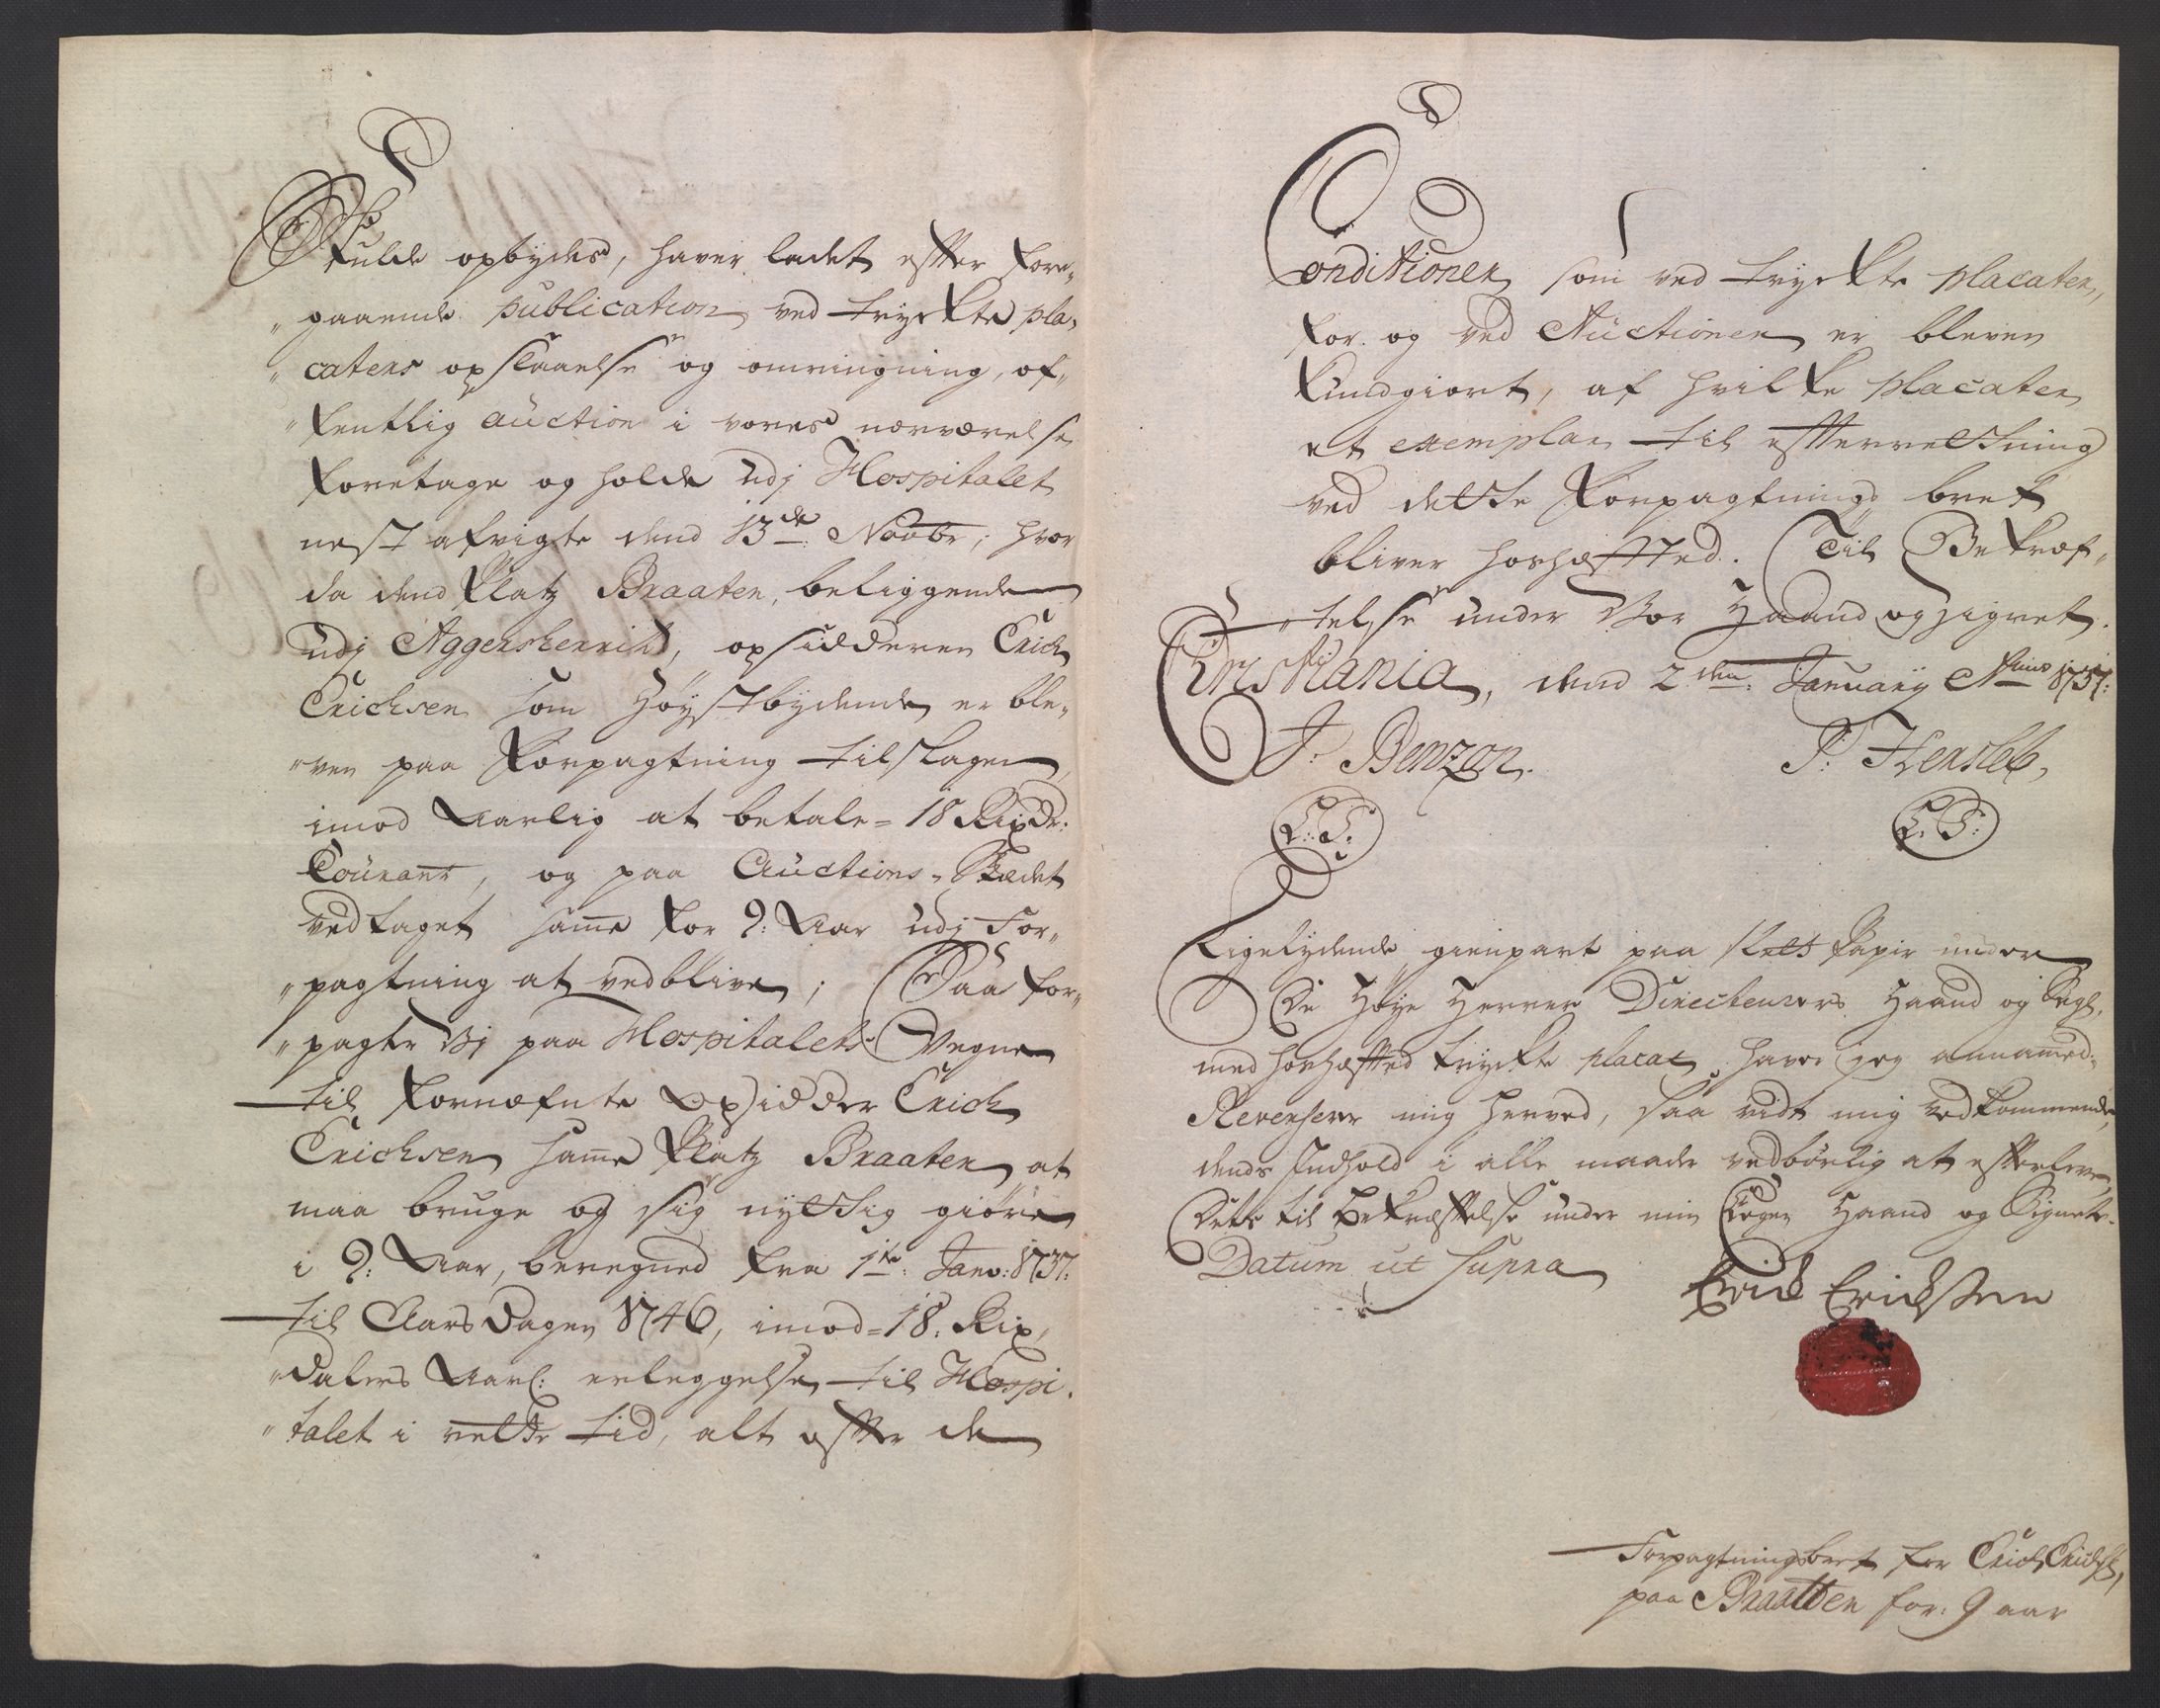 Skulde opbydes, haver ladet efter fore„
„gaaende publication ved tryckte pla„
„caters opslaaelse og omringning, of„
„fentlig auction i vores nerværelse
foretage og holde udj Hospitalet
nest afvigte dend 13de Novbr; hvor
da dend Platz Braaten, beliggende
udj Aggersherrit, opsidderen Erich
Erichsen som Høystbydende er ble„
„ven paa Forpagtning tilslagen,
imod Aarlig at betale = 18 Rixdr:
Courant, og paa Auctions-Stædet
vedtaget samme for 9: Aar udj For„
„pagtning at vedblive; Saa for„
„pagte Vj paa Hospitalets Vegne
til fornefnte Opsidder Erich
Erichsen samme Platz Braaten at
maa bruge og sig nyttig giøre
i 9: Aar, beregned fra 1te: Janv: 1737:
til Aars Dagen 1746, imod = 18. Rix„
„dalers Aarl: erleggelse til Hospi„
„talet i rette tid, alt efter de
Conditioner som ved tryckte placater,
for og ved Auctionen er bleven
Kundgiort, af hvilke placater
et exemplar til efterretning
ved dette Forpagtnings bref
bliver hoshæfted. Til Bekræf„
„telse under Vor Haand og Signet.
Christiania, dend 2den: January Anno 1737:
J: Benzon. P: Hersleb,
L: S: L: S:
Ligelydende gienpart paa slett Papir under
De Høye Herrer Directeurers Haand og Segl,
med hoshæfted tryckte placat, haver jeg annammed.
Reverserer mig herved, saa vidt mig vedkommende,
dends Indhold i alle maade vedbørlig at efterleve,
Dette til bekræftelse under min Egen Haand og Signete.
Datum ut supra
Erick Ericksen
Forpagtningsbref for Erich Erichs:
paa Braatten for: 9 aar